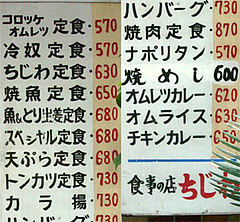 コロッケ
オムレツ 定食・570
冷奴定食・570
ちじわ定食・630
焼魚定食・650
魚&とり生姜定食・680
スペシャル定食・680
天ぷら定食・680
トンカツ定食・730
カラ揚 730
ハンバーグ 730
ハンバーグ 730
焼肉定食 780
ナポリタン 570
焼めし 600
オムレツカレー 620
オムライス 630
チキンカレー
食事の店 ちじわ